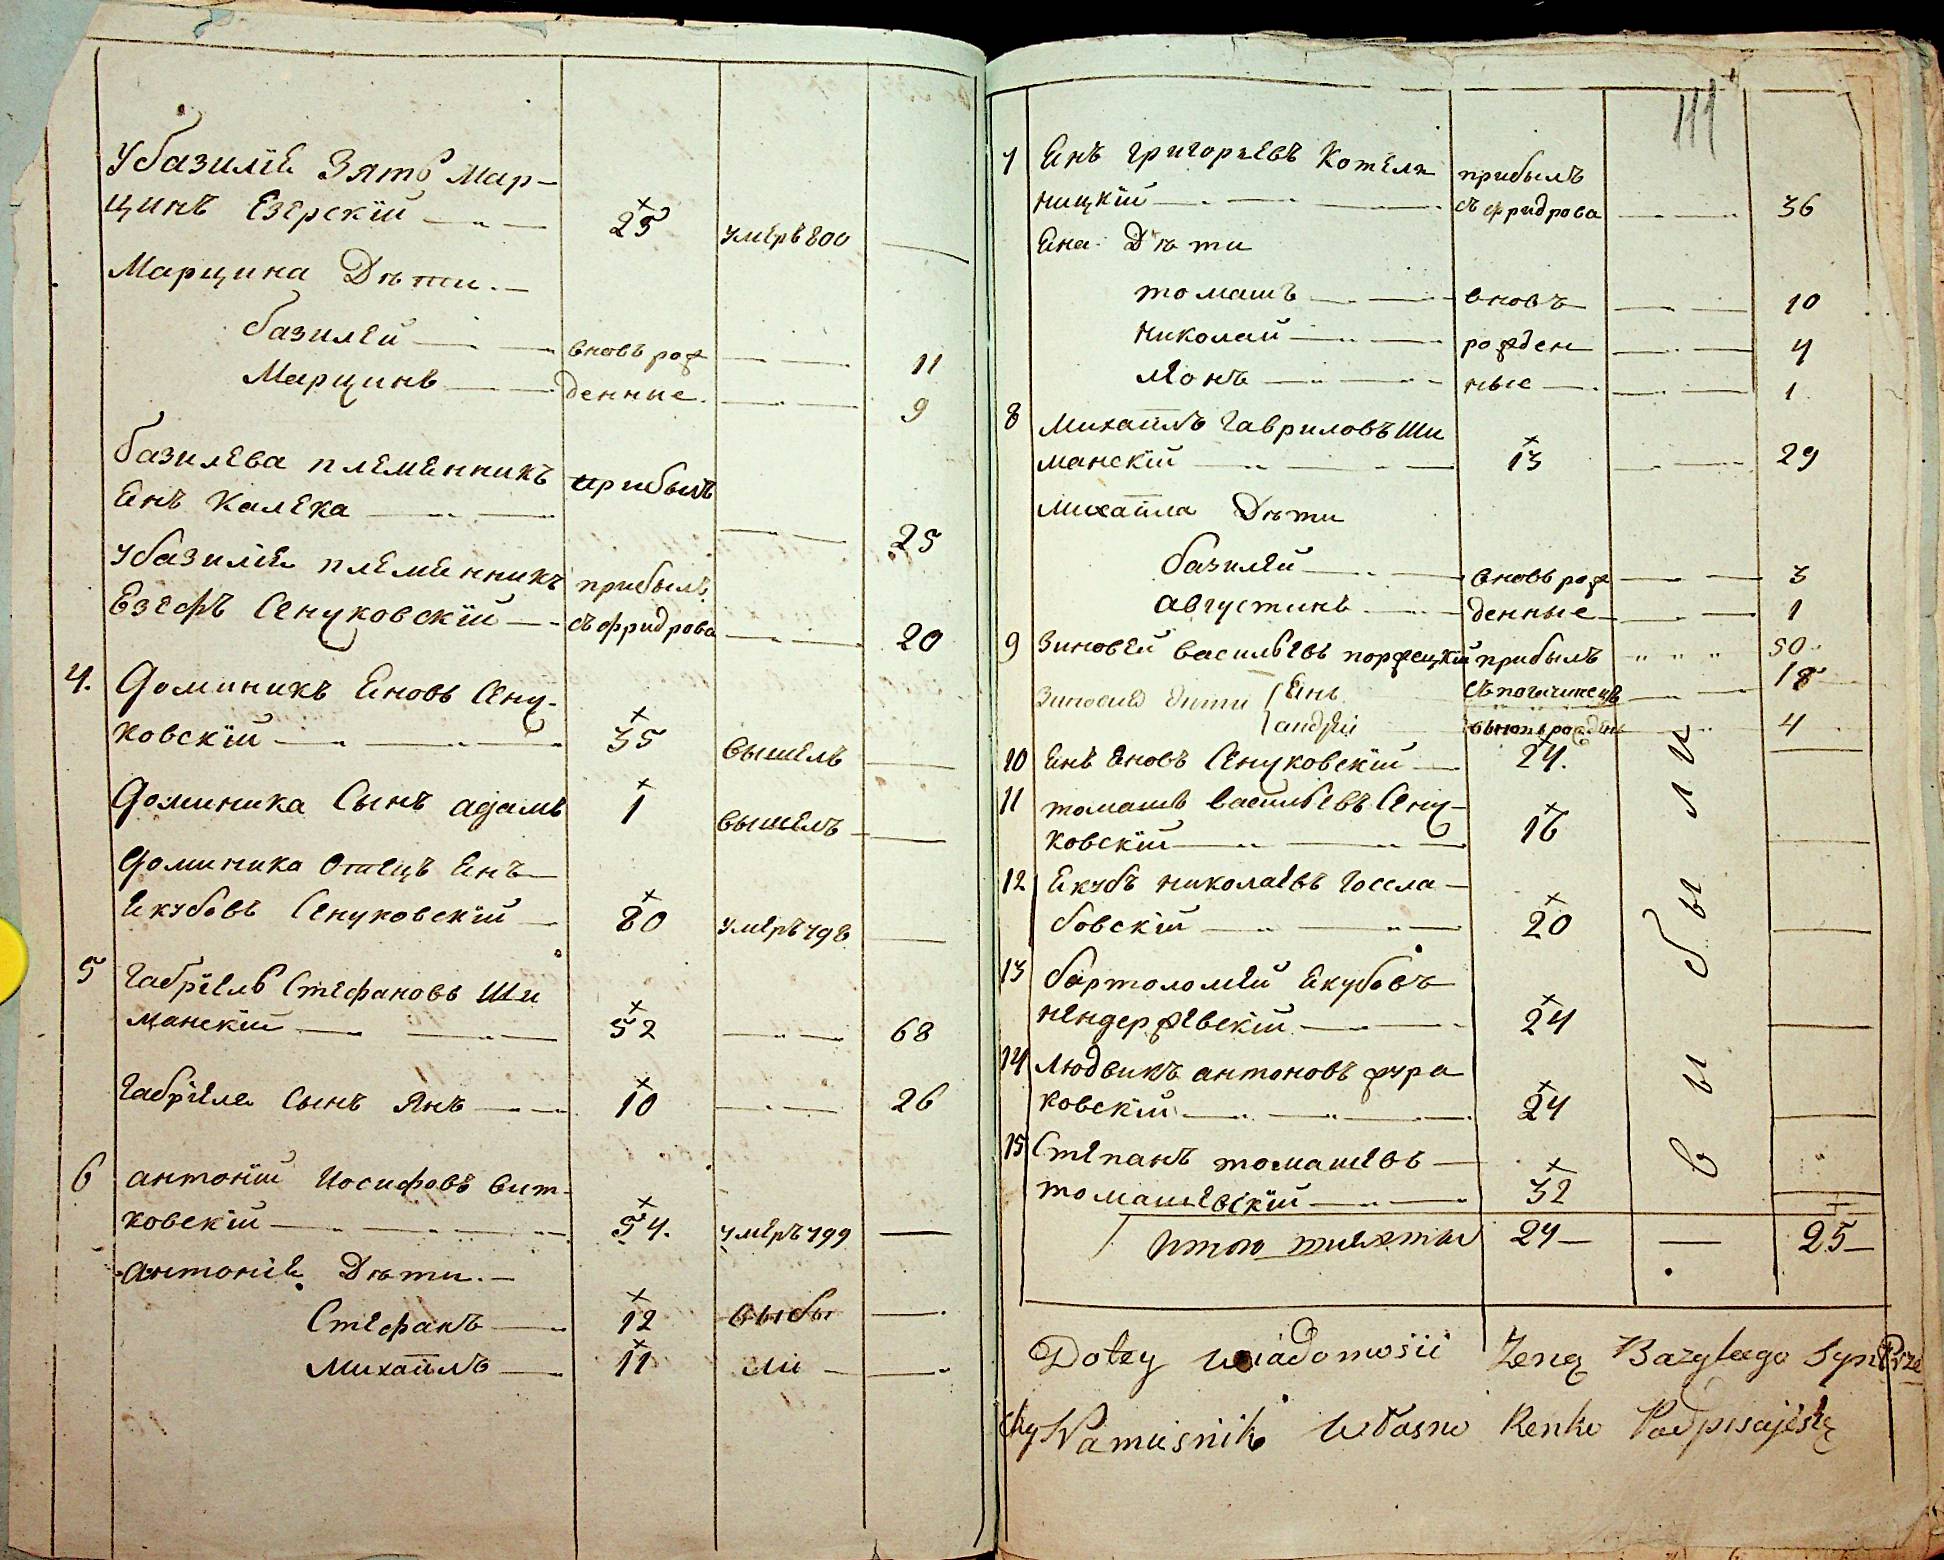 У базилiя Зять Мар-
цинъ Езерскiй 25 умеръ 800
Марцина Дѣти
базилей вновь рож 11
Марцинъ денные 9
базилева племенникъ прибылъ
Янъ Калека 25
У базилiя племенникъ прибылъ
Езефъ Сенуковскiй съ фридрова 20
4. Доминикъ Яновъ Сену-
ковскiй 35 вышелъ
Доминика Сынъ адамъ 1 вышелъ
Доминика Отецъ Янъ
Якубовъ Сенуковскiй 80 умеръ 798
5 Габрiель Стефановъ Ши
манскiй 52 68
Габрiеля Сынъ Янъ 10 26
6 антонiй Иосифовъ вит-
ковскiй 54. умеръ 799
антонiя Дѣти.
Стефанъ 12 выбы
Михайлъ 11 ли
111
7 Янъ григорьевъ Котель прибылъ
ницкiй съ фридрова 36
Яна Дѣти
томашъ вновь 10
Николай рожден 4
леонъ ные 1
8 Михайлъ Гавриловъ Ши
манскiй 13 29
Михайла Дѣти
базилей вновь рож 3
августинъ денные 1
9 Зиновей васильевъ поржецкiй прибылъ 50
Зиновия дѣти Янъ 18
андрей вновь рожден 4
10 Янъ Яновъ Сенуковскiй 24.
11 томашъ васильевъ Сену-
ковскiй 16
12 Якубъ николаевъ Госсла-
бовскiй 20
13 бартоломей Якубовъ
нендержевскiй 24
14 людвикъ антоновъ жура
ковскiй 24
15 Степанъ томашевъ
томашевскiй 32
выбыли
Итого шляхты 24 25
Dotey wiadomosii Zeną Bazylego Syn Prze
Namiesnik Własno Renko Podpisaję się